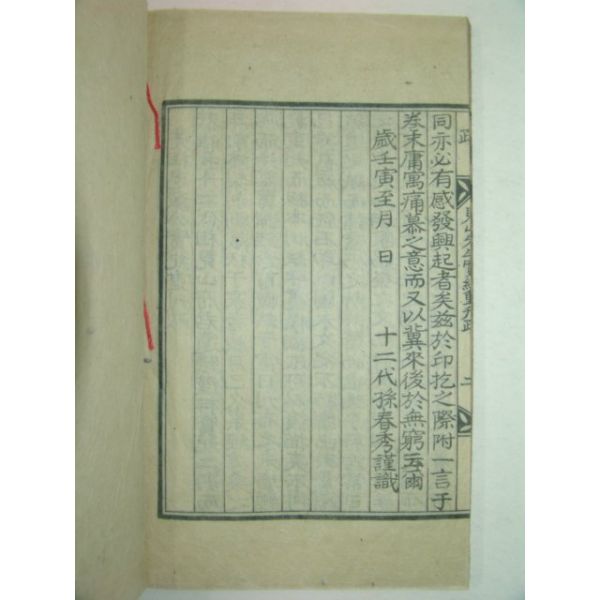 跋
先生實紀重刊跋
二
同亦必有感發興起者矣玆於印抡之際附一言于
卷末庸寓痛慕之意而又以冀來後於無窮云爾
歲壬寅至月 日 十二代孫春秀謹識